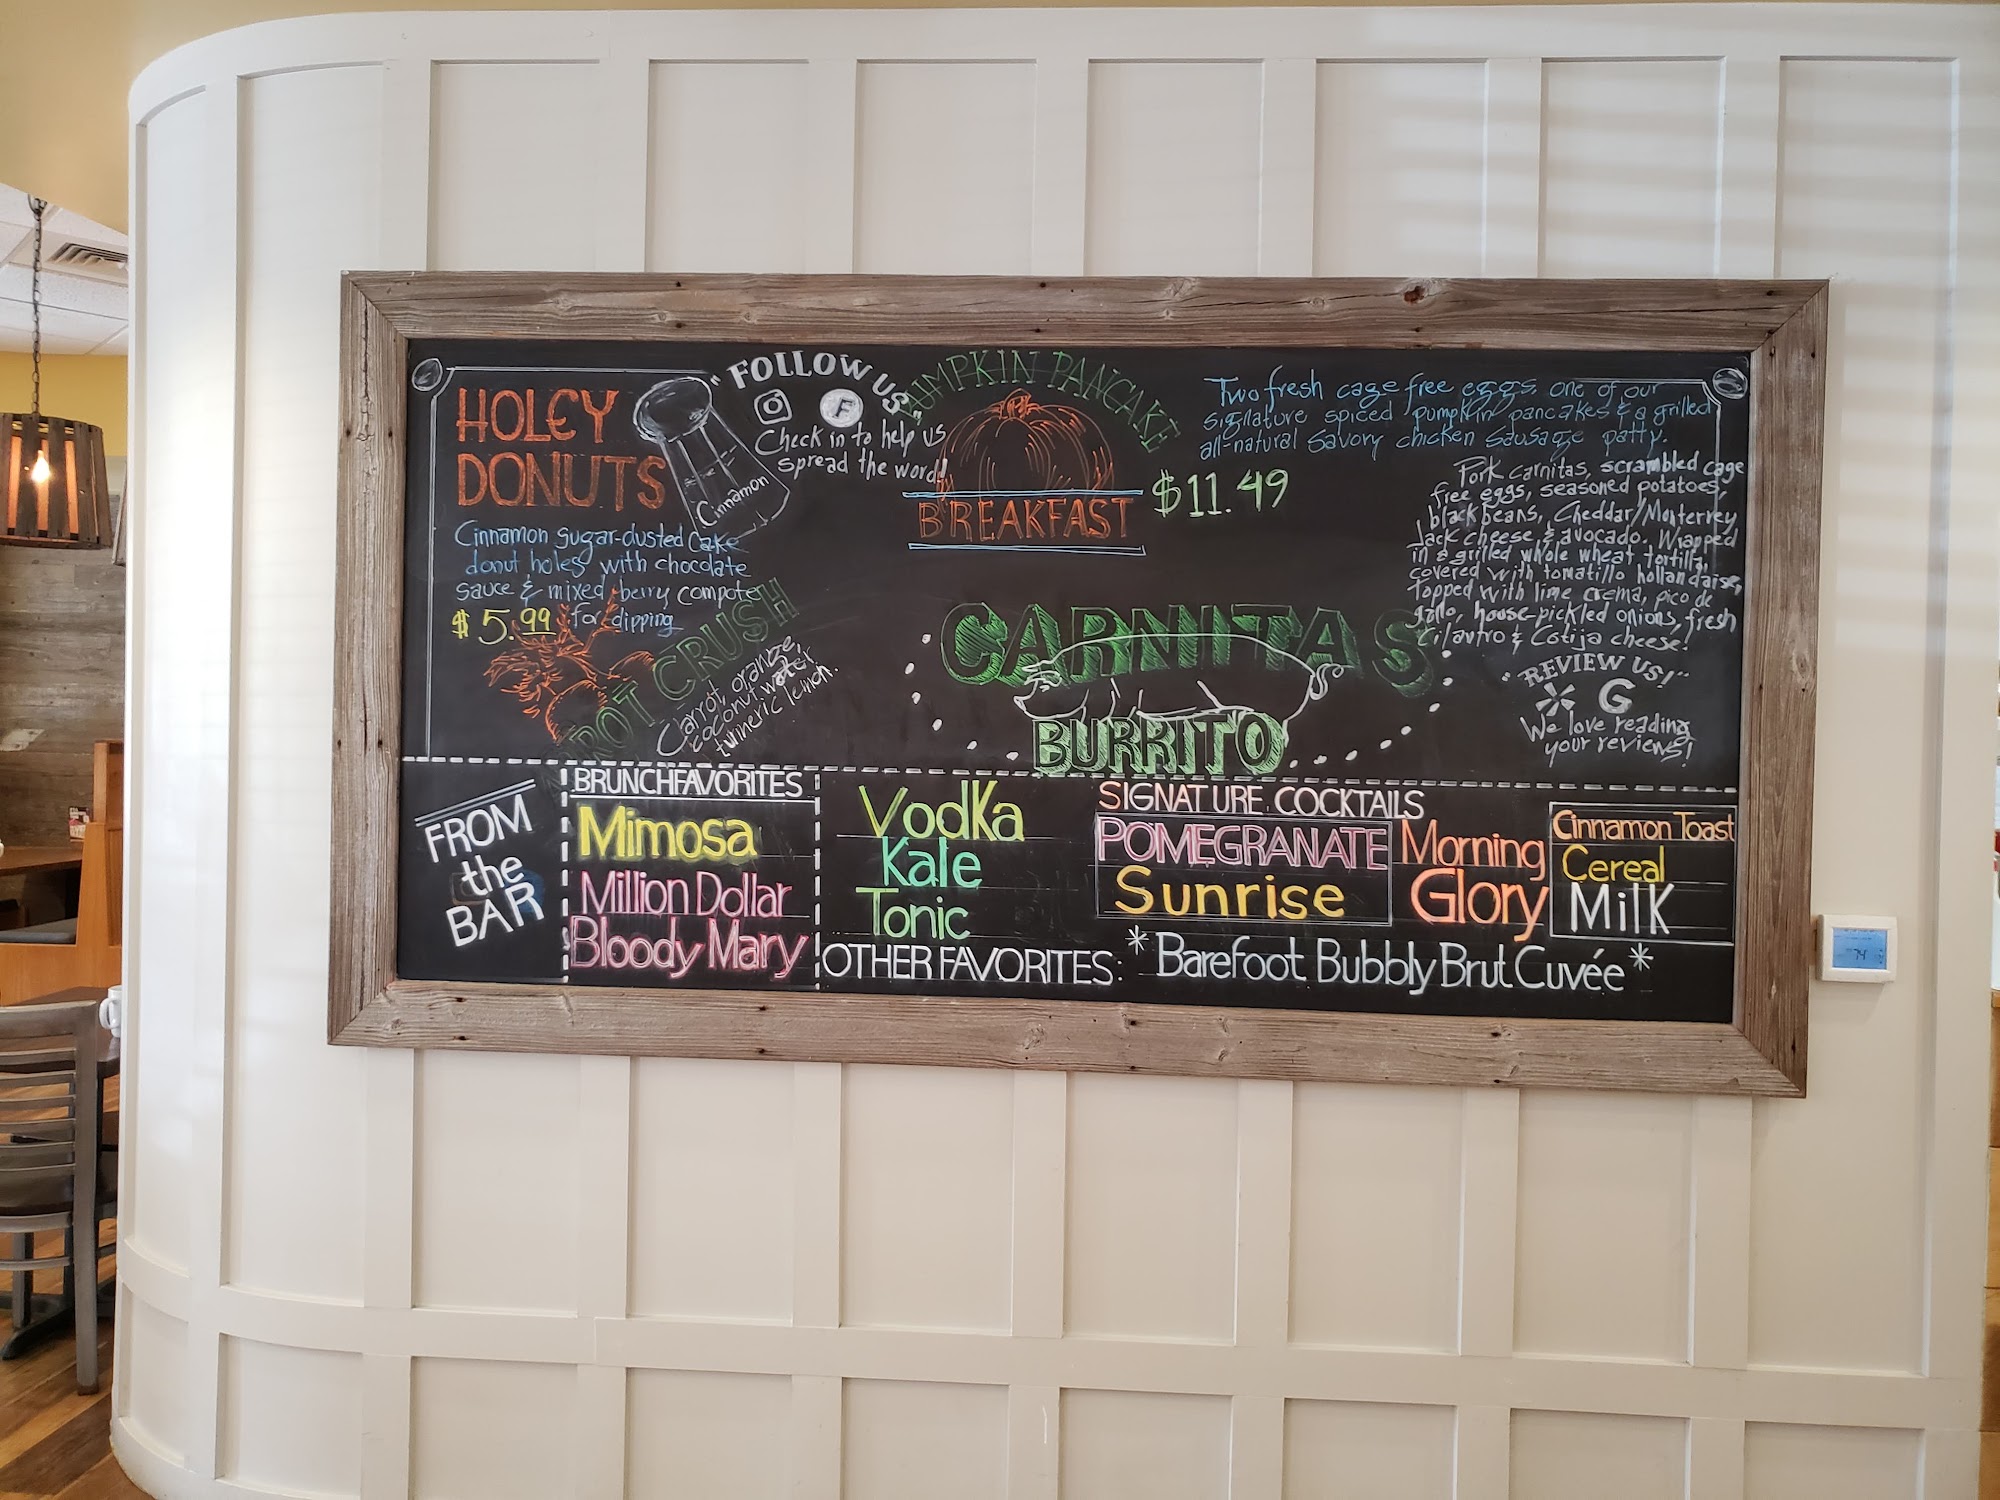 HOLEY
DONUTS
Cinnamon
Cinnamon sugar-dusted cake
donut holes with chocolate
sauce & mixed berry compote
$5.99 for dipping
"FOLLOW US"
F
Check in to help us
spread the word!
PUMPKIN PANCAKE
BREAKFAST
$11.49
Two fresh cage free eggs, one of our
signature spiced pumpkin pancakes & a grilled
all-natural savory chicken sausage patty.
Pork carnitas, scrambled cage
free eggs, seasoned potatoes,
black beans, Cheddar/Monterrey
Jack cheese & avocado. Wrapped
in a grilled whole wheat tortilla,
covered with tomatillo hollandaise,
topped with lime crema, pico de
gallo, house-pickled onions, fresh
cilantro & Cotija cheese.
ROT CRUSH
Carrot, orange,
coconut water,
turmeric lemon.
CARNITAS
BURRITO
"REVIEW US!"
G
We love reading
your reviews!
FROM
the
BAR
BRUNCH FAVORITES
Mimosa
Million Dollar
Bloody Mary
Vodka
Kale
Tonic
SIGNATURE COCKTAILS
POMEGRANATE
Sunrise
Morning
Glory
Cinnamon Toast
Cereal
Milk
OTHER FAVORITES: *Barefoot Bubbly Brut Cuvée*
74